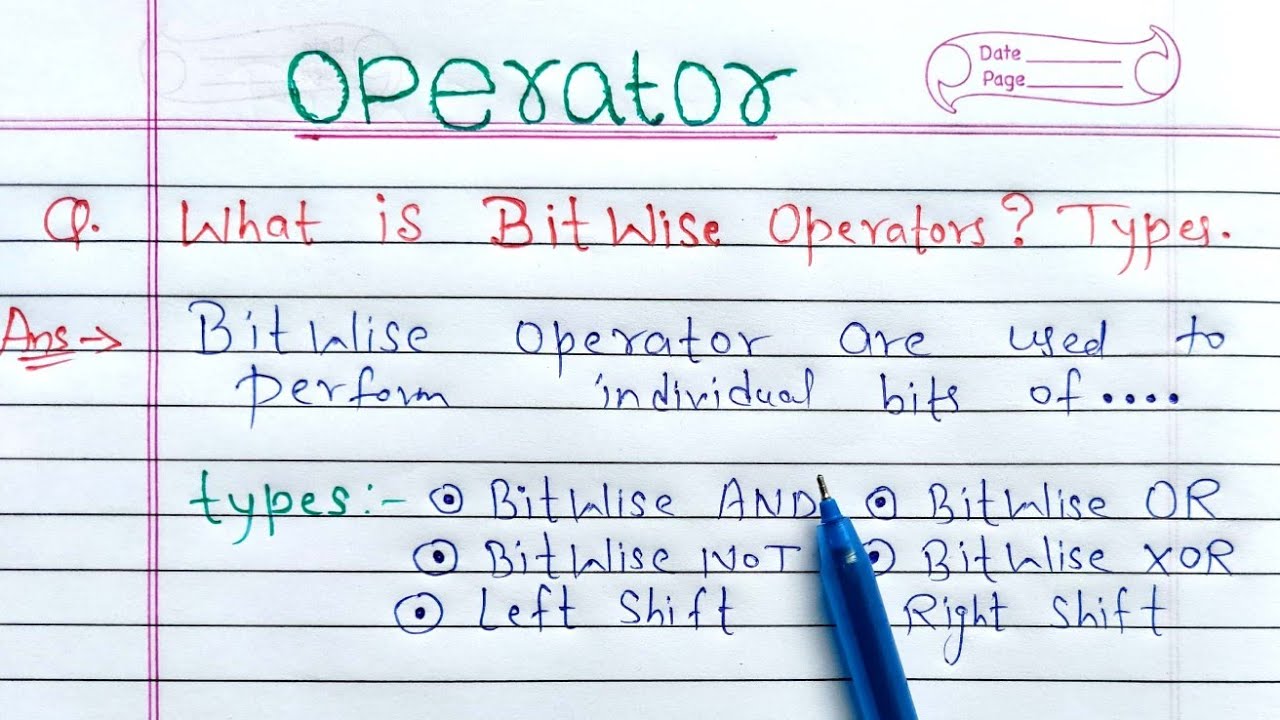 Operator
Date
Page
Q. What is BitWise Operators? Types.
Ans→ BitWise operator are used to
perform individual bits of....
types:- ⊙ BitWise AND ⊙ BitWise OR
⊙ BitWise NOT ⊙ BitWise XOR
⊙ Left Shift Right Shift